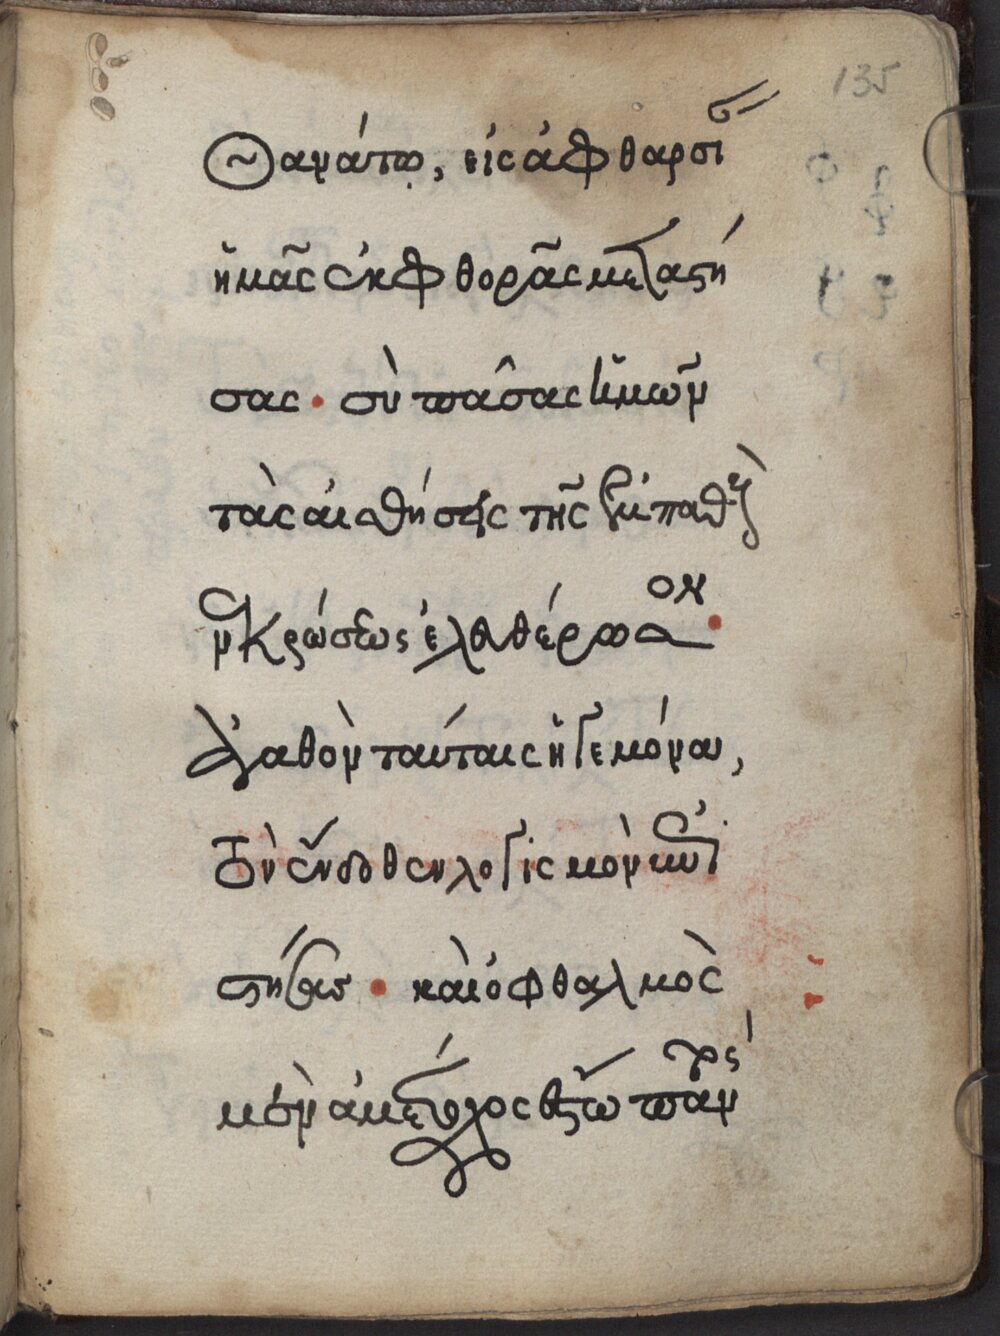 135
Θανάτω, εἰς ἀφθαρσί
ἡμᾶς ἐκ φθορᾶς μεταστή
σας · σὺ πάσας ἡμῶν
τὰς αἰσθήσεις τῆς ἐμπαθοῦς
νεκρώσεως ἐλευθέρωσον ·
ἀγαθὸν ταύταις ἡγεμόνα,
τὸν ἔνδοθεν λογισμὸν ἐπι
στήσας · καὶ ὀφθαλμὸς
μὲν ἀμέτοχος ἔστω παντὸς